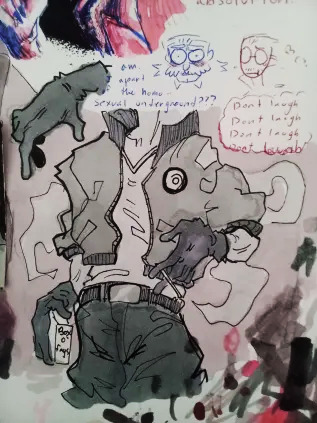 I am
apart
of the homo-
sexual underground???
Don't laugh
Don't laugh
Don't laugh
Don't laugh
Box
o'
fags